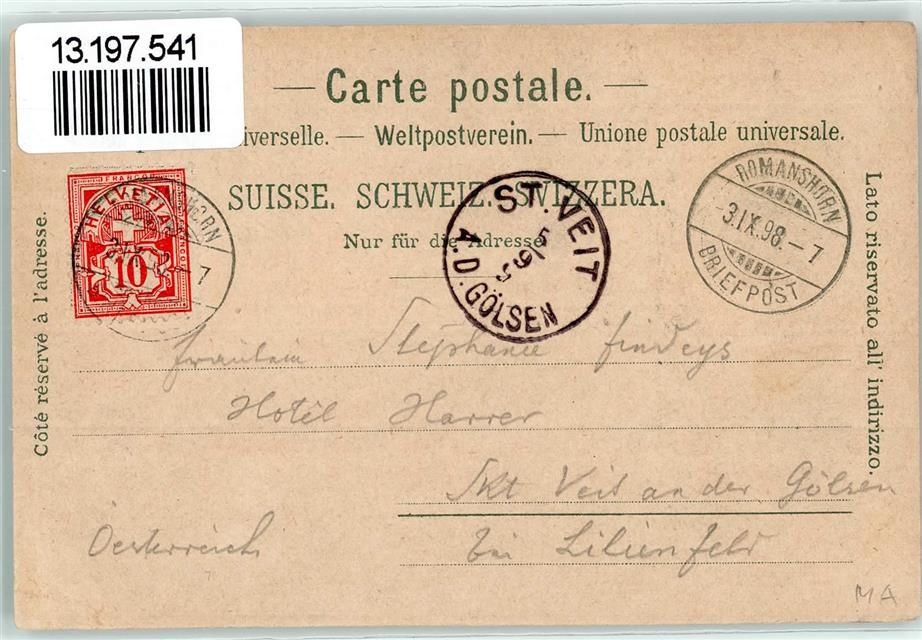 13.197.541
— Carte postale. —
iverselle. — Weltpostverein. — Unione postale universale.
SUISSE. SCHWEIZ. SVIZZERA.
Nur für die Adresse.
Côté réservé à l'adresse.
Lato riservato all' indirizzo.
FRANCO
HELVETIA
10
7
ST. VEIT
5 9 5
A. D. GÖLSEN
ROMANSHORN
-3.IX.98.-7
BRIEFPOST
Fräulein Stephanie Findeys
Hotel Harrer
Skt Veit an der Gölsen
Oesterreich bei Lilienfeld
MA